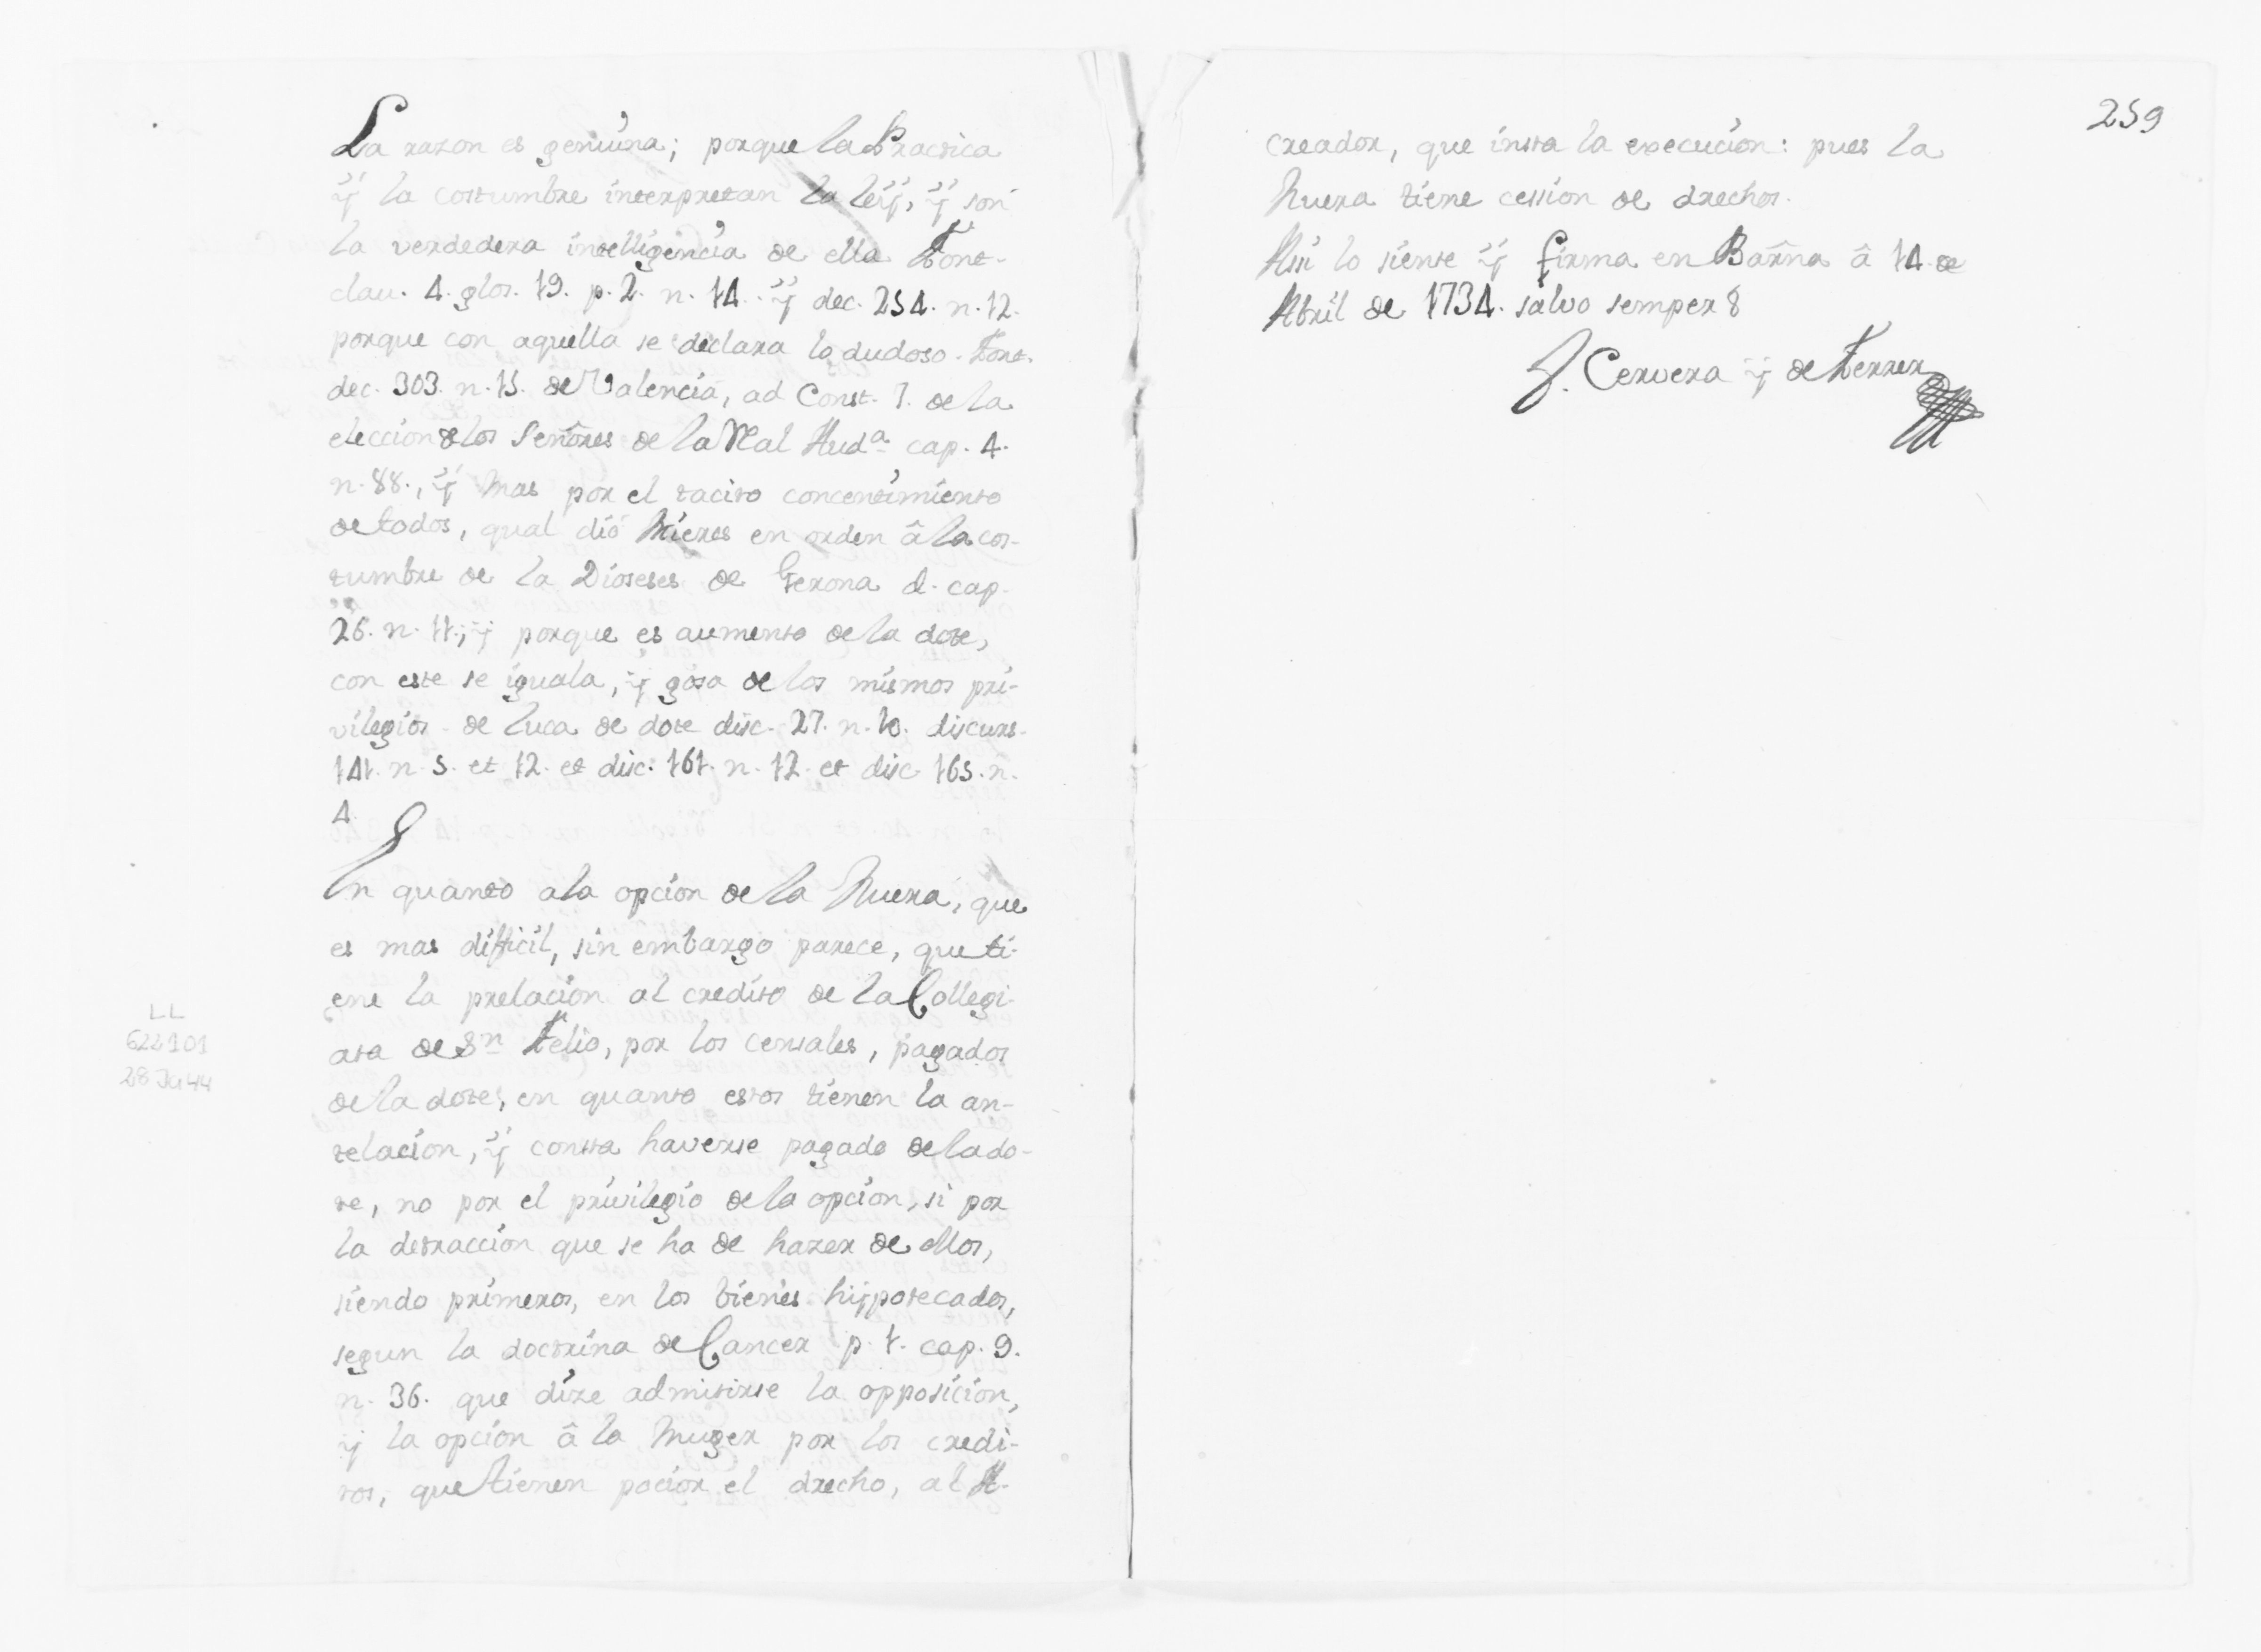 La razon es genuina; porque la Practica
ÿ la costumbre interpretan la leÿ, ÿ son
la verdedera intelligencia de ella Font-
clau. 4. glos. 19. p. 2. n. 14. ÿ dec. 254. n. 12.
porque con aquella se declara lo dudoso. Font.
dec. 303. n. 15. de Valencia, ad Const. 7. de la
eleccion de los Señores de la Real Aud.ª cap. 4.
n. 88., ÿ mas por el tacito concentimiento
de todos, qual dió Mieres en orden â la cos-
tumbre de la Dioseses de Gerona d. cap.
26. n. 11.; ÿ porque es aumento de la dote,
con este se iguala, ÿ gosa de los mismos pri-
vilegios. de Luca de dote disc. 27. n. 10. discurs.
141. n. 5. et 12. et disc. 161. n. 12. et disc. 165. n.
4.
En quanto a la opcion de la Nuera, que
es mas difficil, sin embargo parece, que ti-
ene la prelacion al credito de la Collegi-
ata de Sn Felio, por los censales, pagados
de la dote, en quanto estos tienen la an-
telacion, ÿ consta haverse pagado de la do-
te, no por el privilegio de la opcion, si por
la detraccion que se ha de hazer de ellos,
siendo primeros, en los bienes hÿpotecados,
segun la doctrina de Cancer p. 1. cap. 9.
n. 36. que dize admitirse la opposicion,
ÿ la opcion â la Muger por los credi-
tos, que tienen pocior el drecho, al A-
LL
28 Ju 44
259
creador, que insta la execucion: pues la
Nuera tiene cession de drechos.
Assi lo siente ÿ firma en Barña â 14 de
Abril de 1734. salvo semper &
J. Cervera ÿ de Ferrer